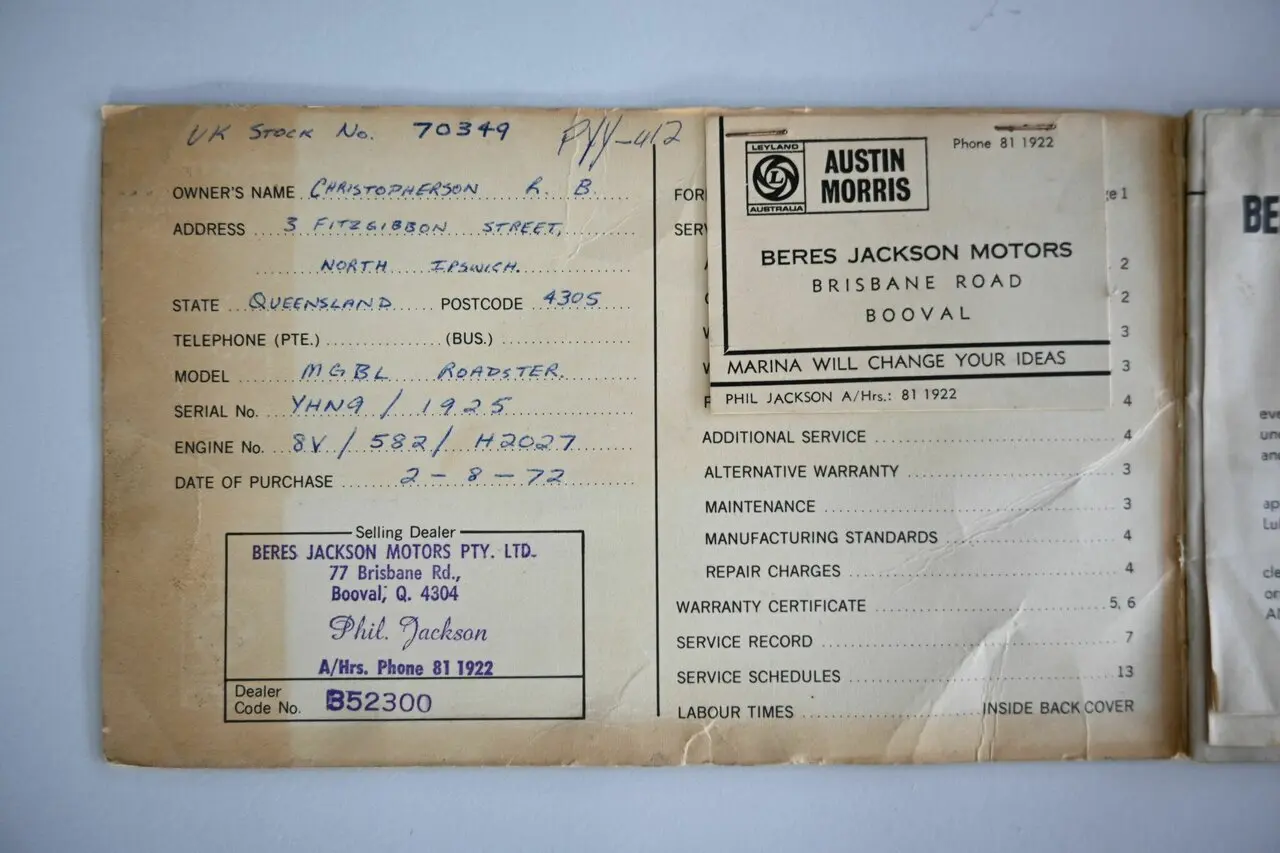 UK STOCK No. 70349
PYY-412
OWNER'S NAME CHRISTOPHERSON R. B.
ADDRESS 3 FITZGIBBON STREET,
NORTH IPSWICH.
STATE QUEENSLAND POSTCODE 4305
TELEPHONE (PTE.) (BUS.)
MODEL MGBL ROADSTER.
SERIAL No. YHN9 / 1925
ENGINE No. 8V / 582 / H2027
DATE OF PURCHASE 2 - 8 - 72
Selling Dealer
BERES JACKSON MOTORS PTY. LTD.
77 Brisbane Rd.,
Booval, Q. 4304
Phil. Jackson
A/Hrs. Phone 81 1922
Dealer
Code No. B52300
Phone 81 1922
LEYLAND
L
AUSTRALIA
AUSTIN
MORRIS
BERES JACKSON MOTORS
BRISBANE ROAD
BOOVAL
MARINA WILL CHANGE YOUR IDEAS
PHIL JACKSON A/Hrs.: 81 1922
FOR
1
SER
2
2
3
3
4
ADDITIONAL SERVICE 4
ALTERNATIVE WARRANTY 3
MAINTENANCE 3
MANUFACTURING STANDARDS 4
REPAIR CHARGES 4
WARRANTY CERTIFICATE 5, 6
SERVICE RECORD 7
SERVICE SCHEDULES 13
LABOUR TIMES INSIDE BACK COVER
BE